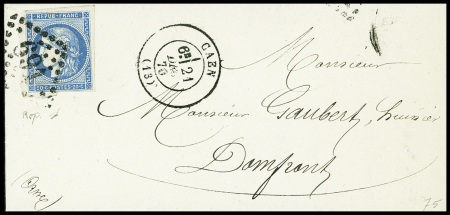 REPUB. FRANC.
CAEN
6E 21
70
(13)
Monsieur
Monsieur Gaubert, huissier
Domfront
(Orne)
75